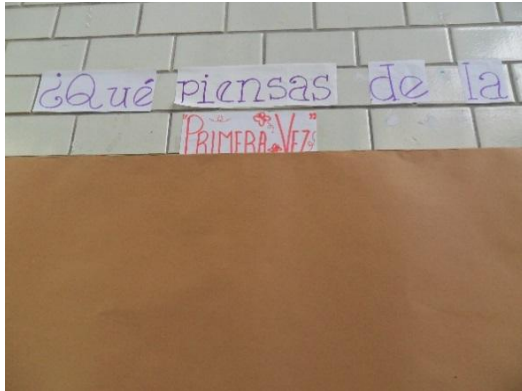 ¿Qué piensas de la
"PRIMERA VEZ"